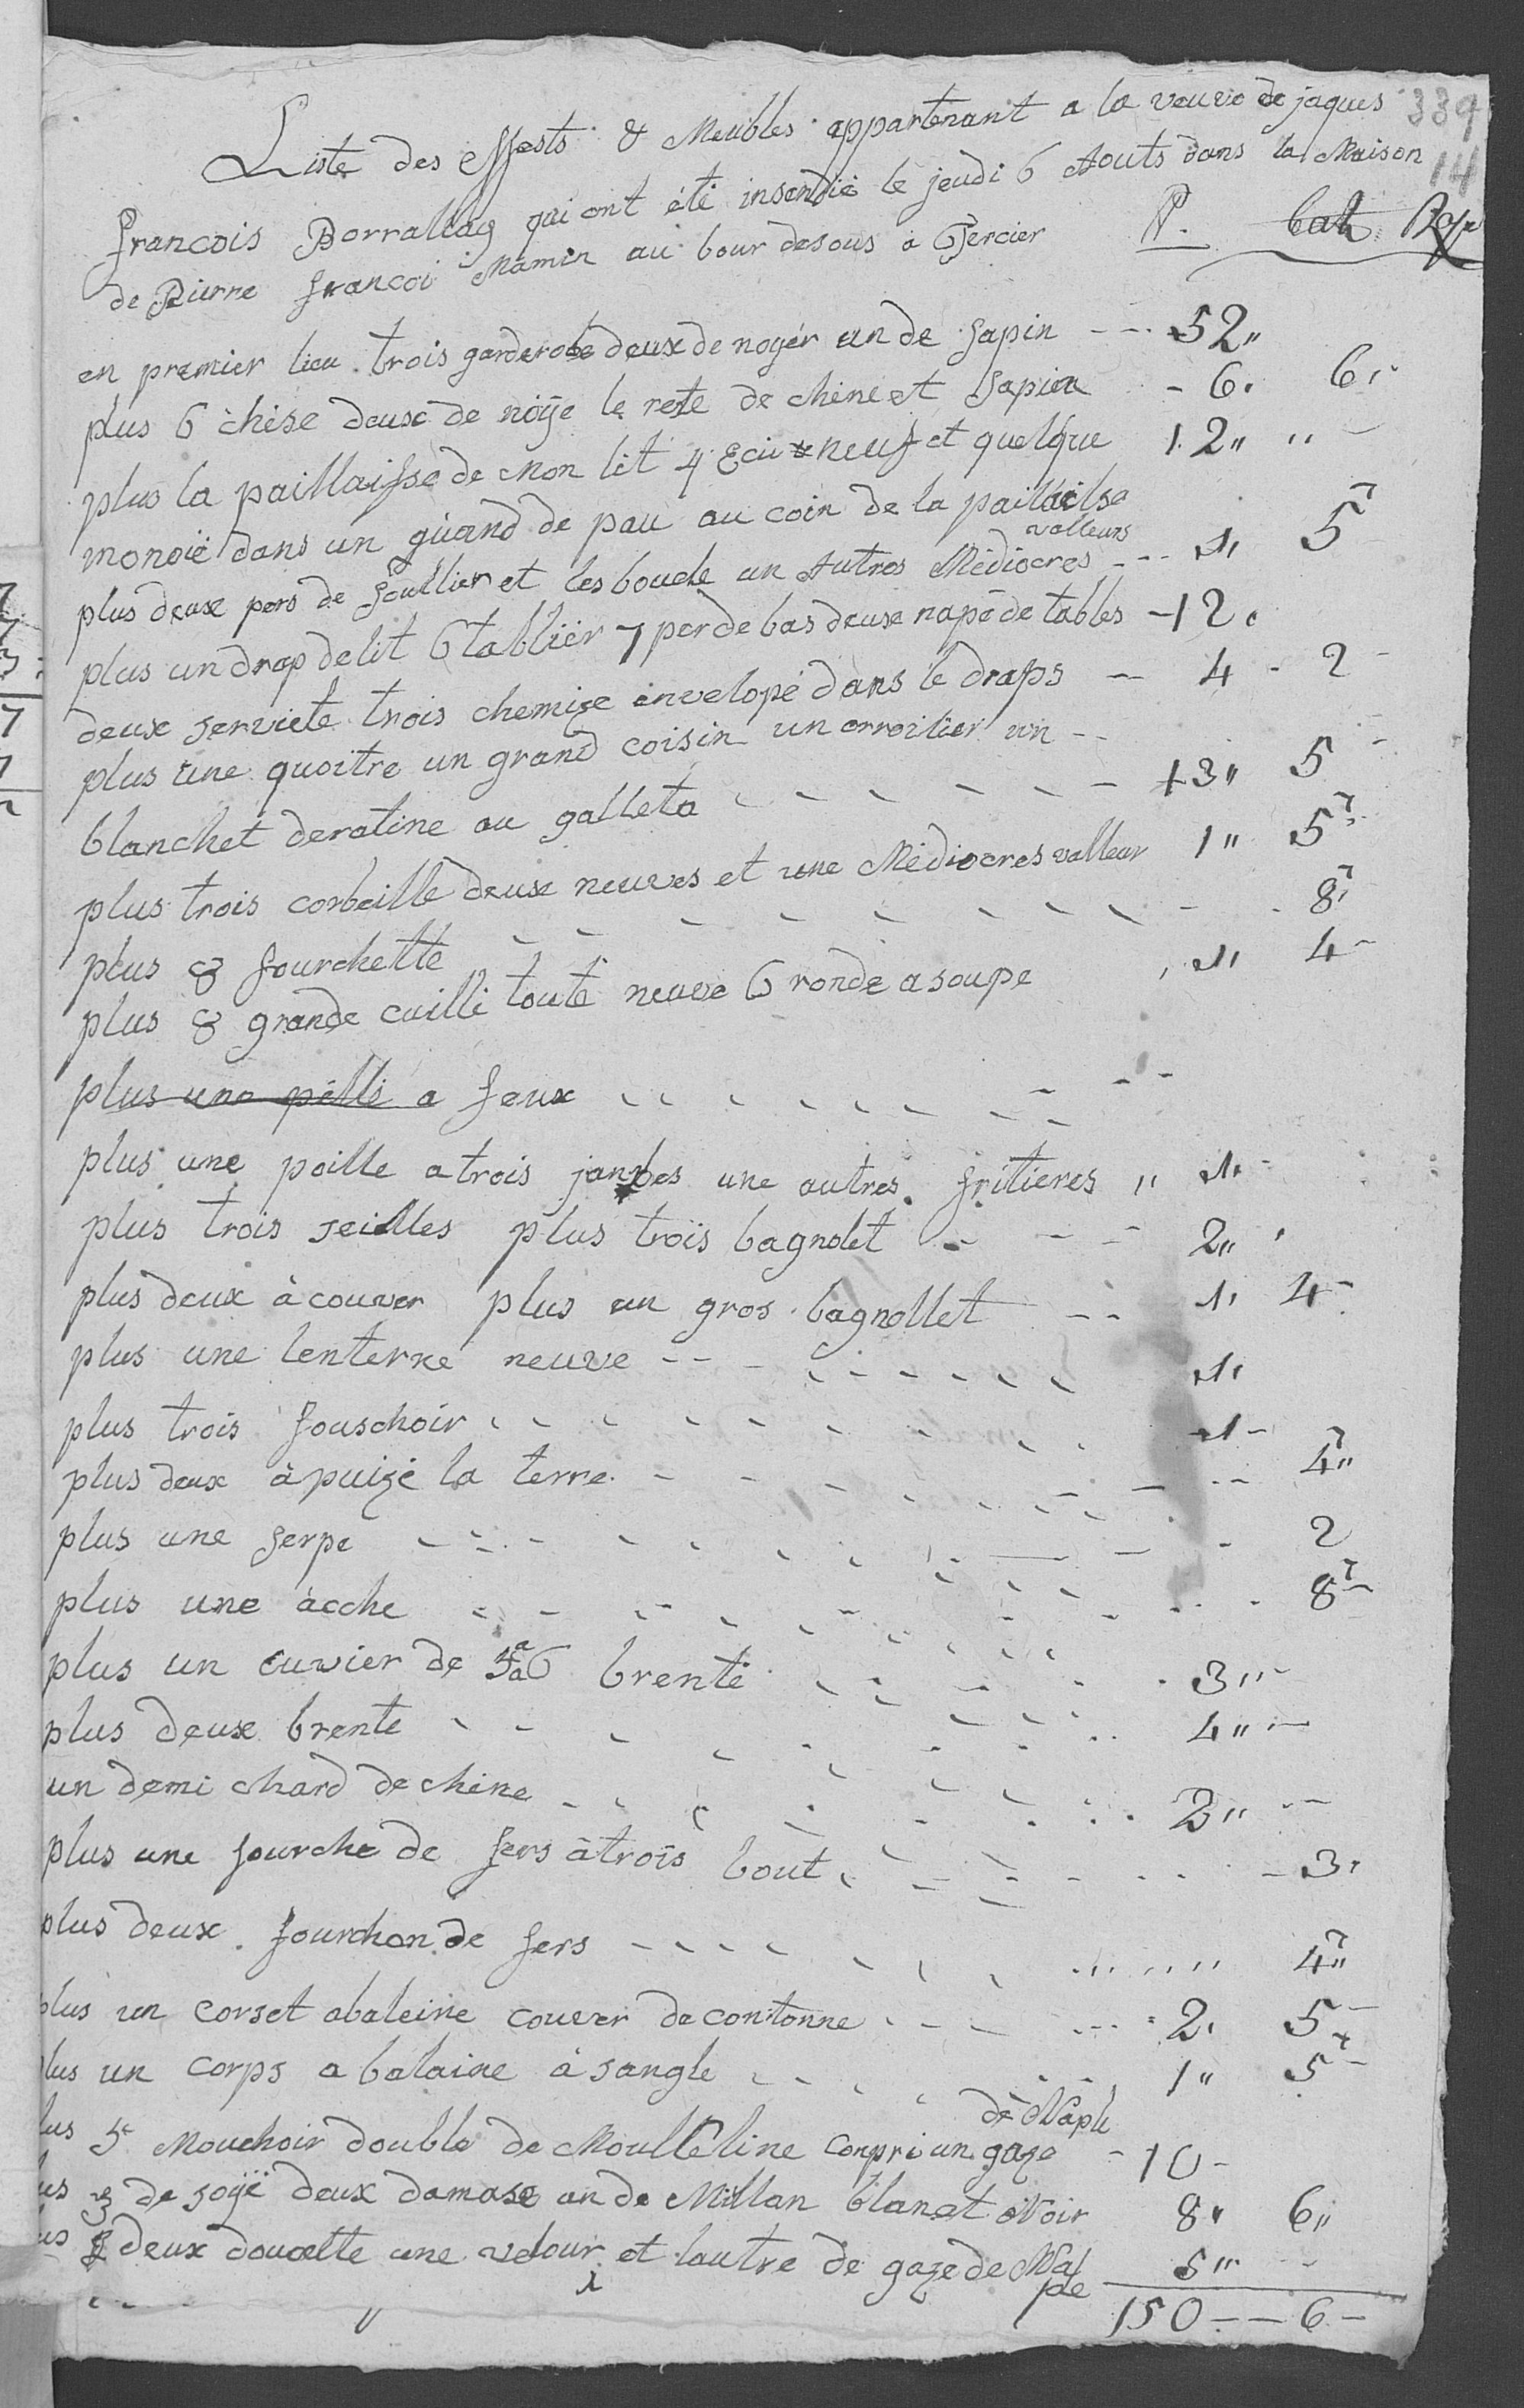 339
14
Liste des effests & Meubles appartenant a la veuve de jaques
francois Borrallay qui ont été insendié le jeudi 6 Aouts dans la Maison
de Pierre francoi Mamin au bour desous a
en premier lieu trois garderobe deux de noyér un de sapin --- 52"
plus 6 chèse deuxe de nöye le reste de chene et sapien - 6. 6"
plus la paillaisse de mon lit 4 Ecu neuf et quelque 12" " -
monoië dans un guand de pau au coin de la pailaise
plus deuxe pers de soullier et les boucle un Autres Mèdiocres valleurs -- 1, 5
plus un drap de lit 6 tabliér 7 per de bas deuxe napéde tables - 12.
deuxe serviete trois chemise envelopé dans le draps -- 4 - 2 -
plus une quoitre un grand coisin un orroilier un --
blanchet deratine au galleta - - - - - - 13" 5 -
plus trois corbeille deuxe neuves et une Mediocres valleur 1" 5
plus 8 fourchette - - - - - - - - - 8
plus 8 grande cuilli toute neuve 6 ronde a soupe , 1, 4 -
plus une pelle a feux - - - - - - - - -
plus une poille a trois jambes une autres fritieres " 1. -
plus trois seilles plus troïs bagnolet - - - 2" '
plus deux à couver plus un gros bagnollet -- 1, 4 -
plus une lenterne neuve - - - - - - - - 1,
plus trois fouschoir - - - - - - - - 1 -
plus deux à puizé la terre - - - - - - - 4"
plus une serpe - - - - - - - - - 2
plus une acche - - - - - - - - - 8 -
plus un cuvier de 5 a 6 brente - - - - . 3" -
plus deuxe brente - - - - - - - 4" -
un demi chard de chene - - - - - - 2" --
plus une fourche de fers à trois bout - - - - - 3,
plus deux fourchon de fers - - - - - - - 4"
plus un corset abaleine couver de contonne - - - 2, 5 -
lus un corps a balaine à sangle - - - - 1" 5 -
lus 5 Mouchoir double de Mousseline conpri un gaze de Naple - 10 -
us 3 de soÿe deux damase un de Millan blan et Noir 8" 6"
us deux doucette une velour et lautre de gaze de Na
ple 5" -
150 - - 6 -